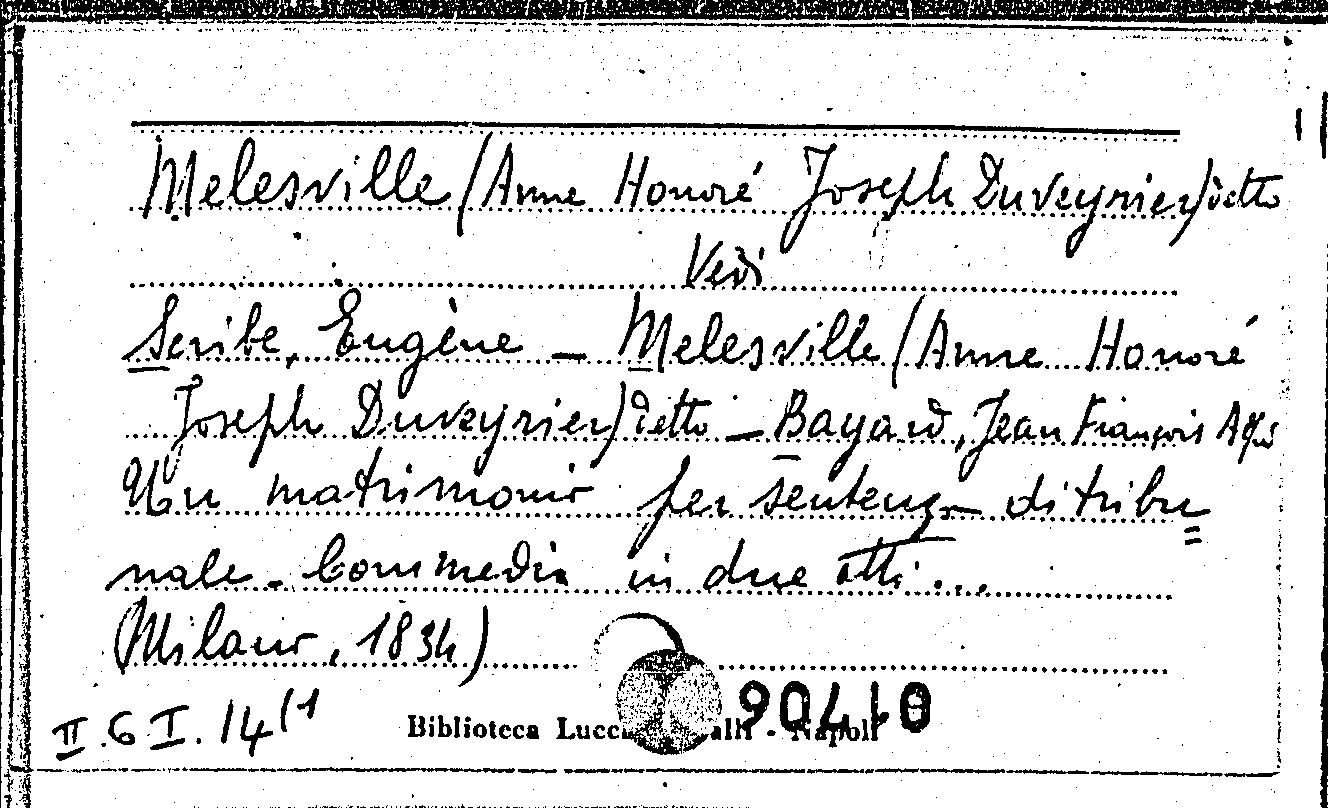 Melesville (Anne Honoré Joseph Duveyrier) detto
Vedi
Scribe, Eugène – Melesville (Anne Honoré
Joseph Duveyrier) detto – Bayard, Jean François
Un matrimonio per sentenza di tribu=
nale. Commedia in due atti...
(Milano, 1834)
II.6 I.14(1
90410
Biblioteca - Napoli